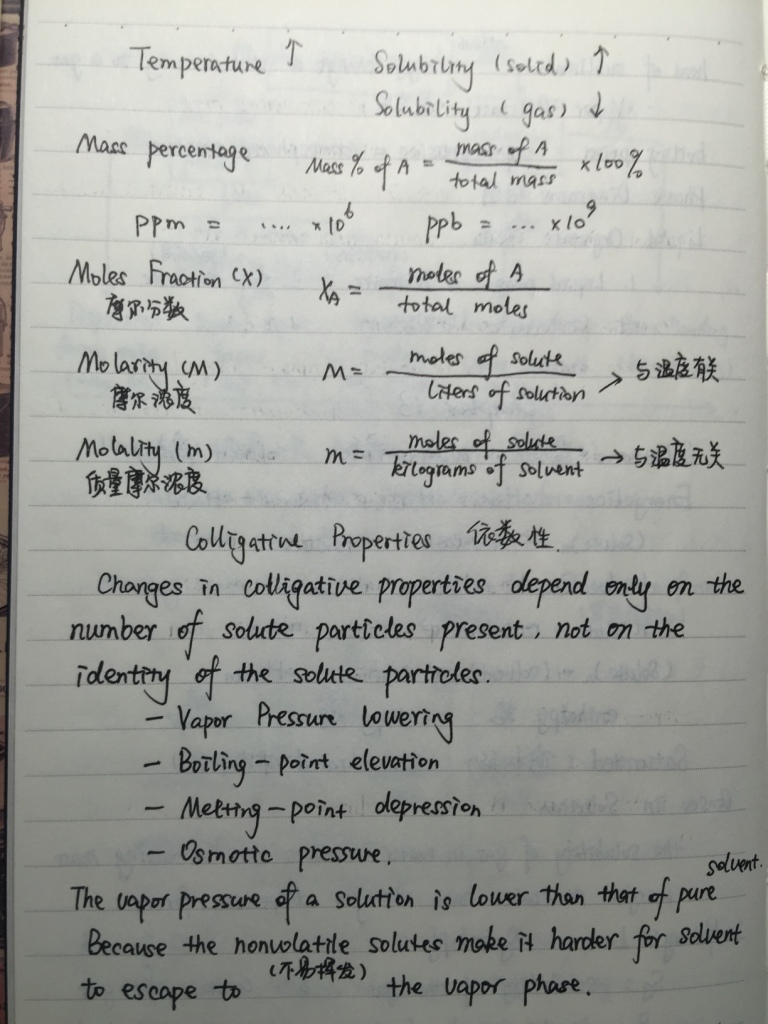 Temperature ↑ Solubility (solid) ↑
Solubility (gas) ↓
Mass percentage Mass % of A = mass of A / total mass ×100%
ppm = .... ×10⁶ ppb = ... ×10⁹
Moles Fraction (X) X_A = moles of A / total moles
摩尔分数
Molarity (M) M = moles of solute / liters of solution → 与温度有关
摩尔浓度
Molality (m) m = moles of solute / kilograms of solvent → 与温度无关
质量摩尔浓度
Colligative Properties 依数性.
Changes in colligative properties depend only on the
number of solute particles present, not on the
identity of the solute particles.
- Vapor Pressure lowering
- Boiling-point elevation
- Melting-point depression
- Osmotic pressure.
The vapor pressure of a solution is lower than that of pure solvent.
Because the nonvolatile solutes make it harder for solvent
(不易挥发)
to escape to the vapor phase.